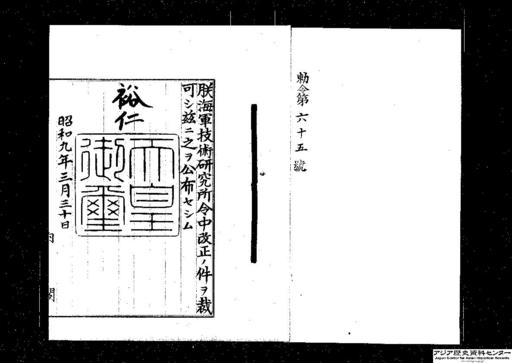 勅令第六十五號
朕海軍技術研究所令中改正ノ件ヲ裁
可シ玆ニ之ヲ公布セシム
裕仁
天皇御璽
昭和九年三月三十日
内閣
アジア歴史資料センター
Japan Center for Asian Historical Records